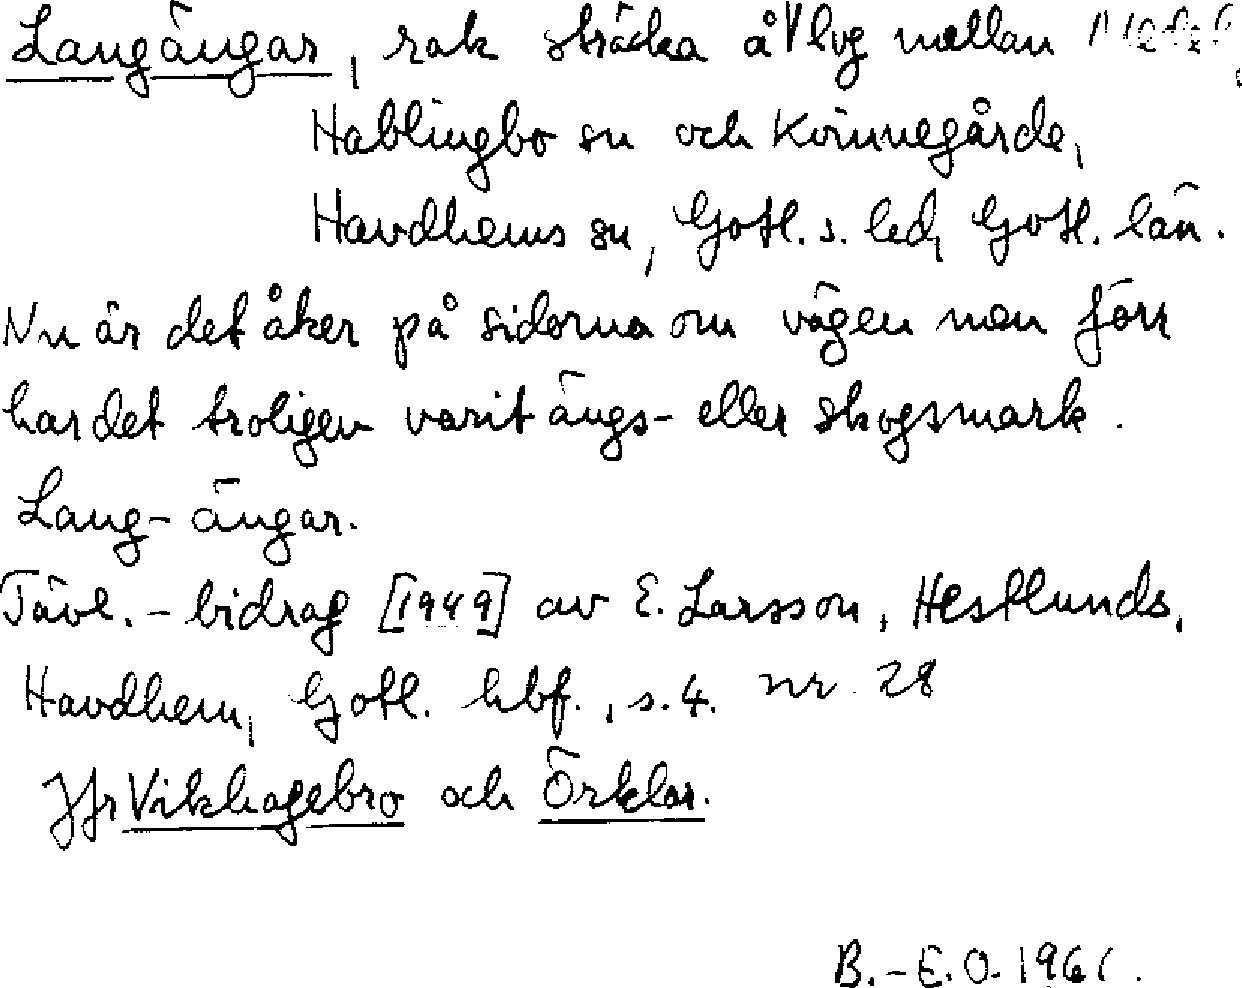 Langängar, rak sträcka å lvg mellan
Hablingbo sn och Kvinnegårde,
Havdhems sn, Gotl. s. hd, Gotl. län.
Nu är det åker på sidorna om vägen men förr
har det troligen varit ängs- eller skogsmark.
Lang-ängar.
Tävl.-bidrag [1949] av E. Larsson, Hestlunds,
Havdhem, Gotl. hbf., s. 4. nr 28
Jfr Vikhagebro och Örklar.
B.-E. O. 1961.